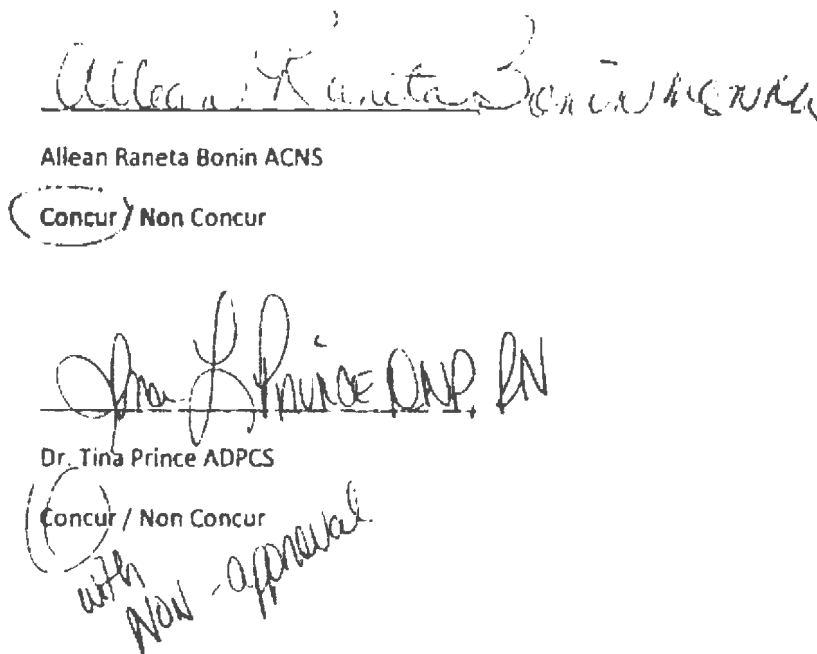 Allean Raneta Bonin
Allean Raneta Bonin ACNS
Concur / Non Concur
Tina L Prince DNP, RN
Dr. Tina Prince ADPCS
Concur / Non Concur
with
Non-approval